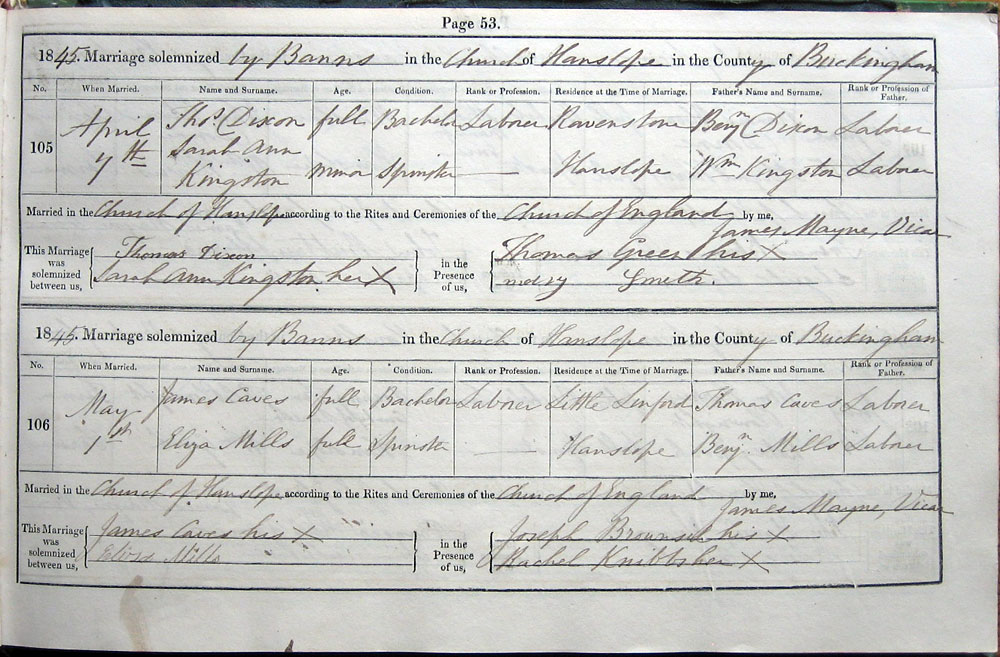 Page 53.
1845. Marriage solemnized by Banns in the Church of Hanslope in the County of Buckingham
No. When Married. Name and Surname. Age. Condition. Rank or Profession. Residence at the Time of Marriage. Father's Name and Surname. Rank or Profession of Father.
105 April 7th Thos. Dixon full Bachelor Laborer Ravenstone Benjn Dixon Laborer
Sarah Ann Kingston minor Spinster — Hanslope Wm Kingston Laborer
Married in the Church of Hanslope according to the Rites and Ceremonies of the Church of England by me,
James Mayne, Vicar
This Marriage was solemnized between us, Thomas Dixon
Sarah Ann Kingston her X
in the Presence of us, Thomas Green his X
Smith.
1845. Marriage solemnized by Banns in the Church of Hanslope in the County of Buckingham
No. When Married. Name and Surname. Age. Condition. Rank or Profession. Residence at the Time of Marriage. Father's Name and Surname. Rank or Profession of Father.
106 May 1st James Caves full Bachelor Laborer Little Linford Thomas Caves Laborer
Eliza Mills full Spinster — Hanslope Benjn. Mills Laborer
Married in the Church of Hanslope according to the Rites and Ceremonies of the Church of England by me,
James Mayne, Vicar
This Marriage was solemnized between us, James Caves his X
Mills
in the Presence of us, Joseph his X
Rachel Knibbs her X